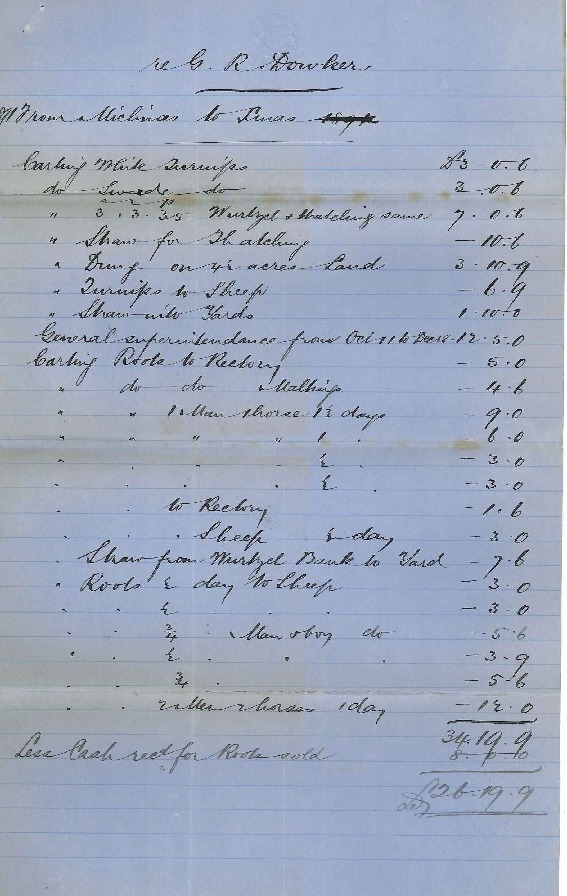 re G. R Dowker.
From Miclmas to Xmas
Carting White Turnips £3-0.6
do Swede do 3.0.6
" 3.3.35 Wurtzel & thatching same 7.0.6
" Straw for Thatching - 10-6
" Dung on 4½ acres Land 3-10-9
" Turnips to Sheep - 6.9
" Straw into Yards 1-10-0
General superintendance from Oct 11 to Decr 12.5.0
Carting Roots to Rectory - 5.0
" do do Malking - 4.6
" " 1 Man 1 horse 1½ days 9.0
" " " " 1 . 6.0
. . . ½ . - 3.0
. . . ½ . - 3.0
. . to Rectory - 1.6
. . Sheep ½ day - 3.0
. Straw from Wurtzel Bank to Yard - 7.6
" Roots ½ day to Sheep - 3.0
. . ½ . . - 3.0
. . ¾ . Man & boy do - 5.6
" . ½ . " . - 3.9
. . ¾ . . - 5.6
. . 2 Men 2 horses 1 day - 12.0
34.19.9
Less Cash recd for Roots sold 8.0.0
£26-19.9